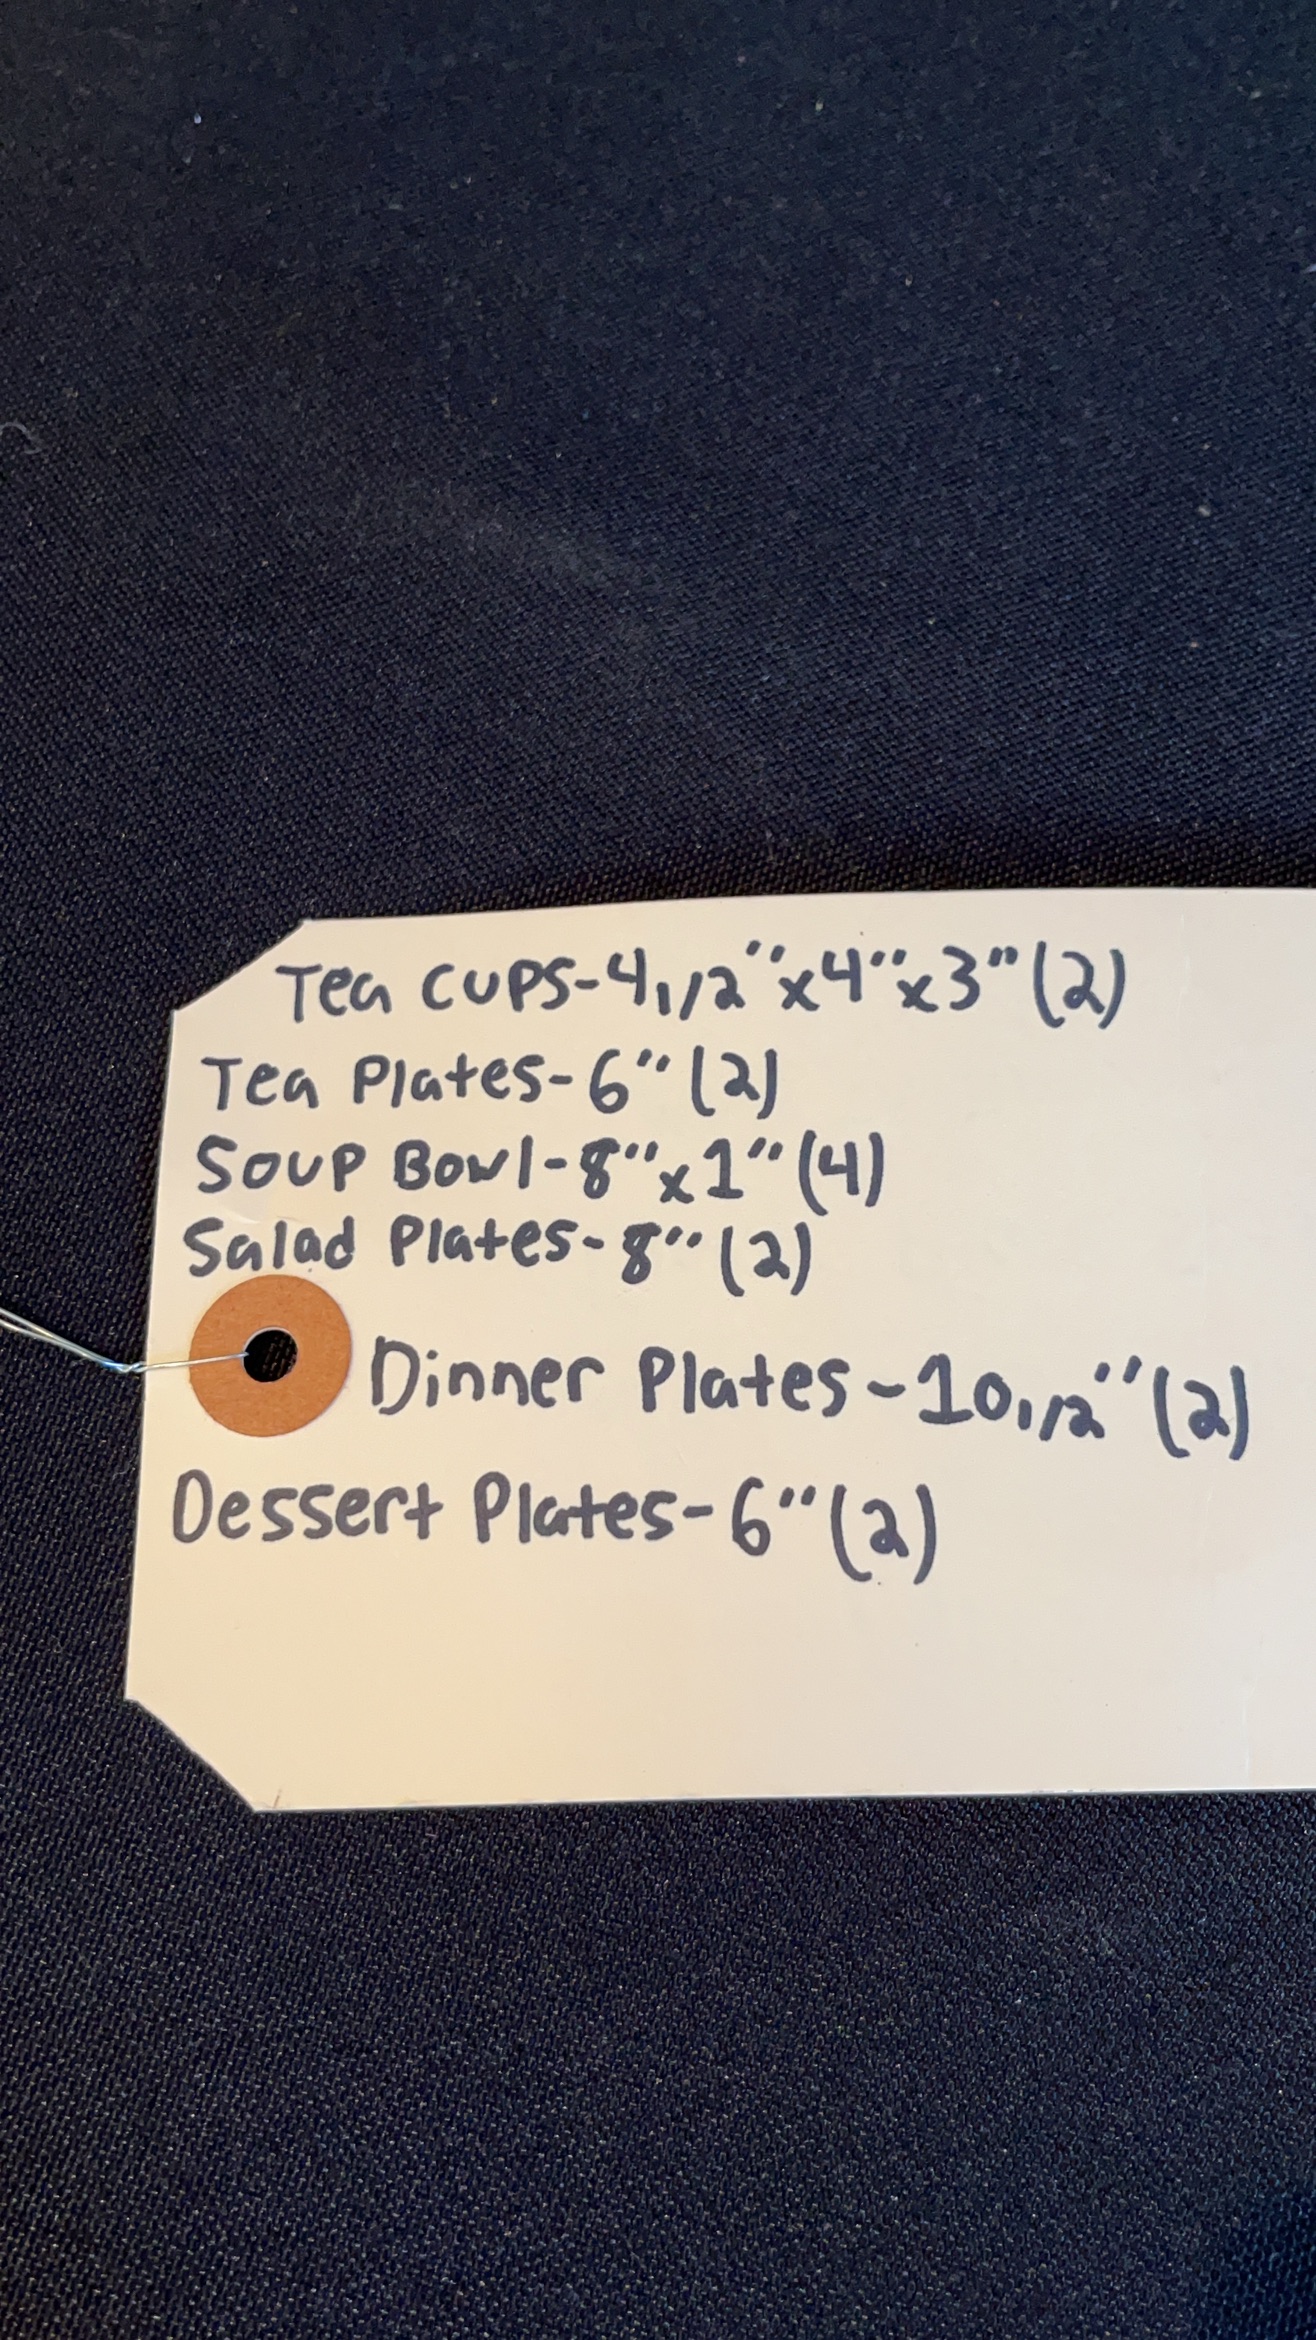 Tea CUPS-4,1/2"x4"x3" (2)
Tea Plates-6" (2)
Soup Bowl-8"x1" (4)
Salad Plates-8" (2)
Dinner Plates-10,1/2" (2)
Dessert Plates-6" (2)